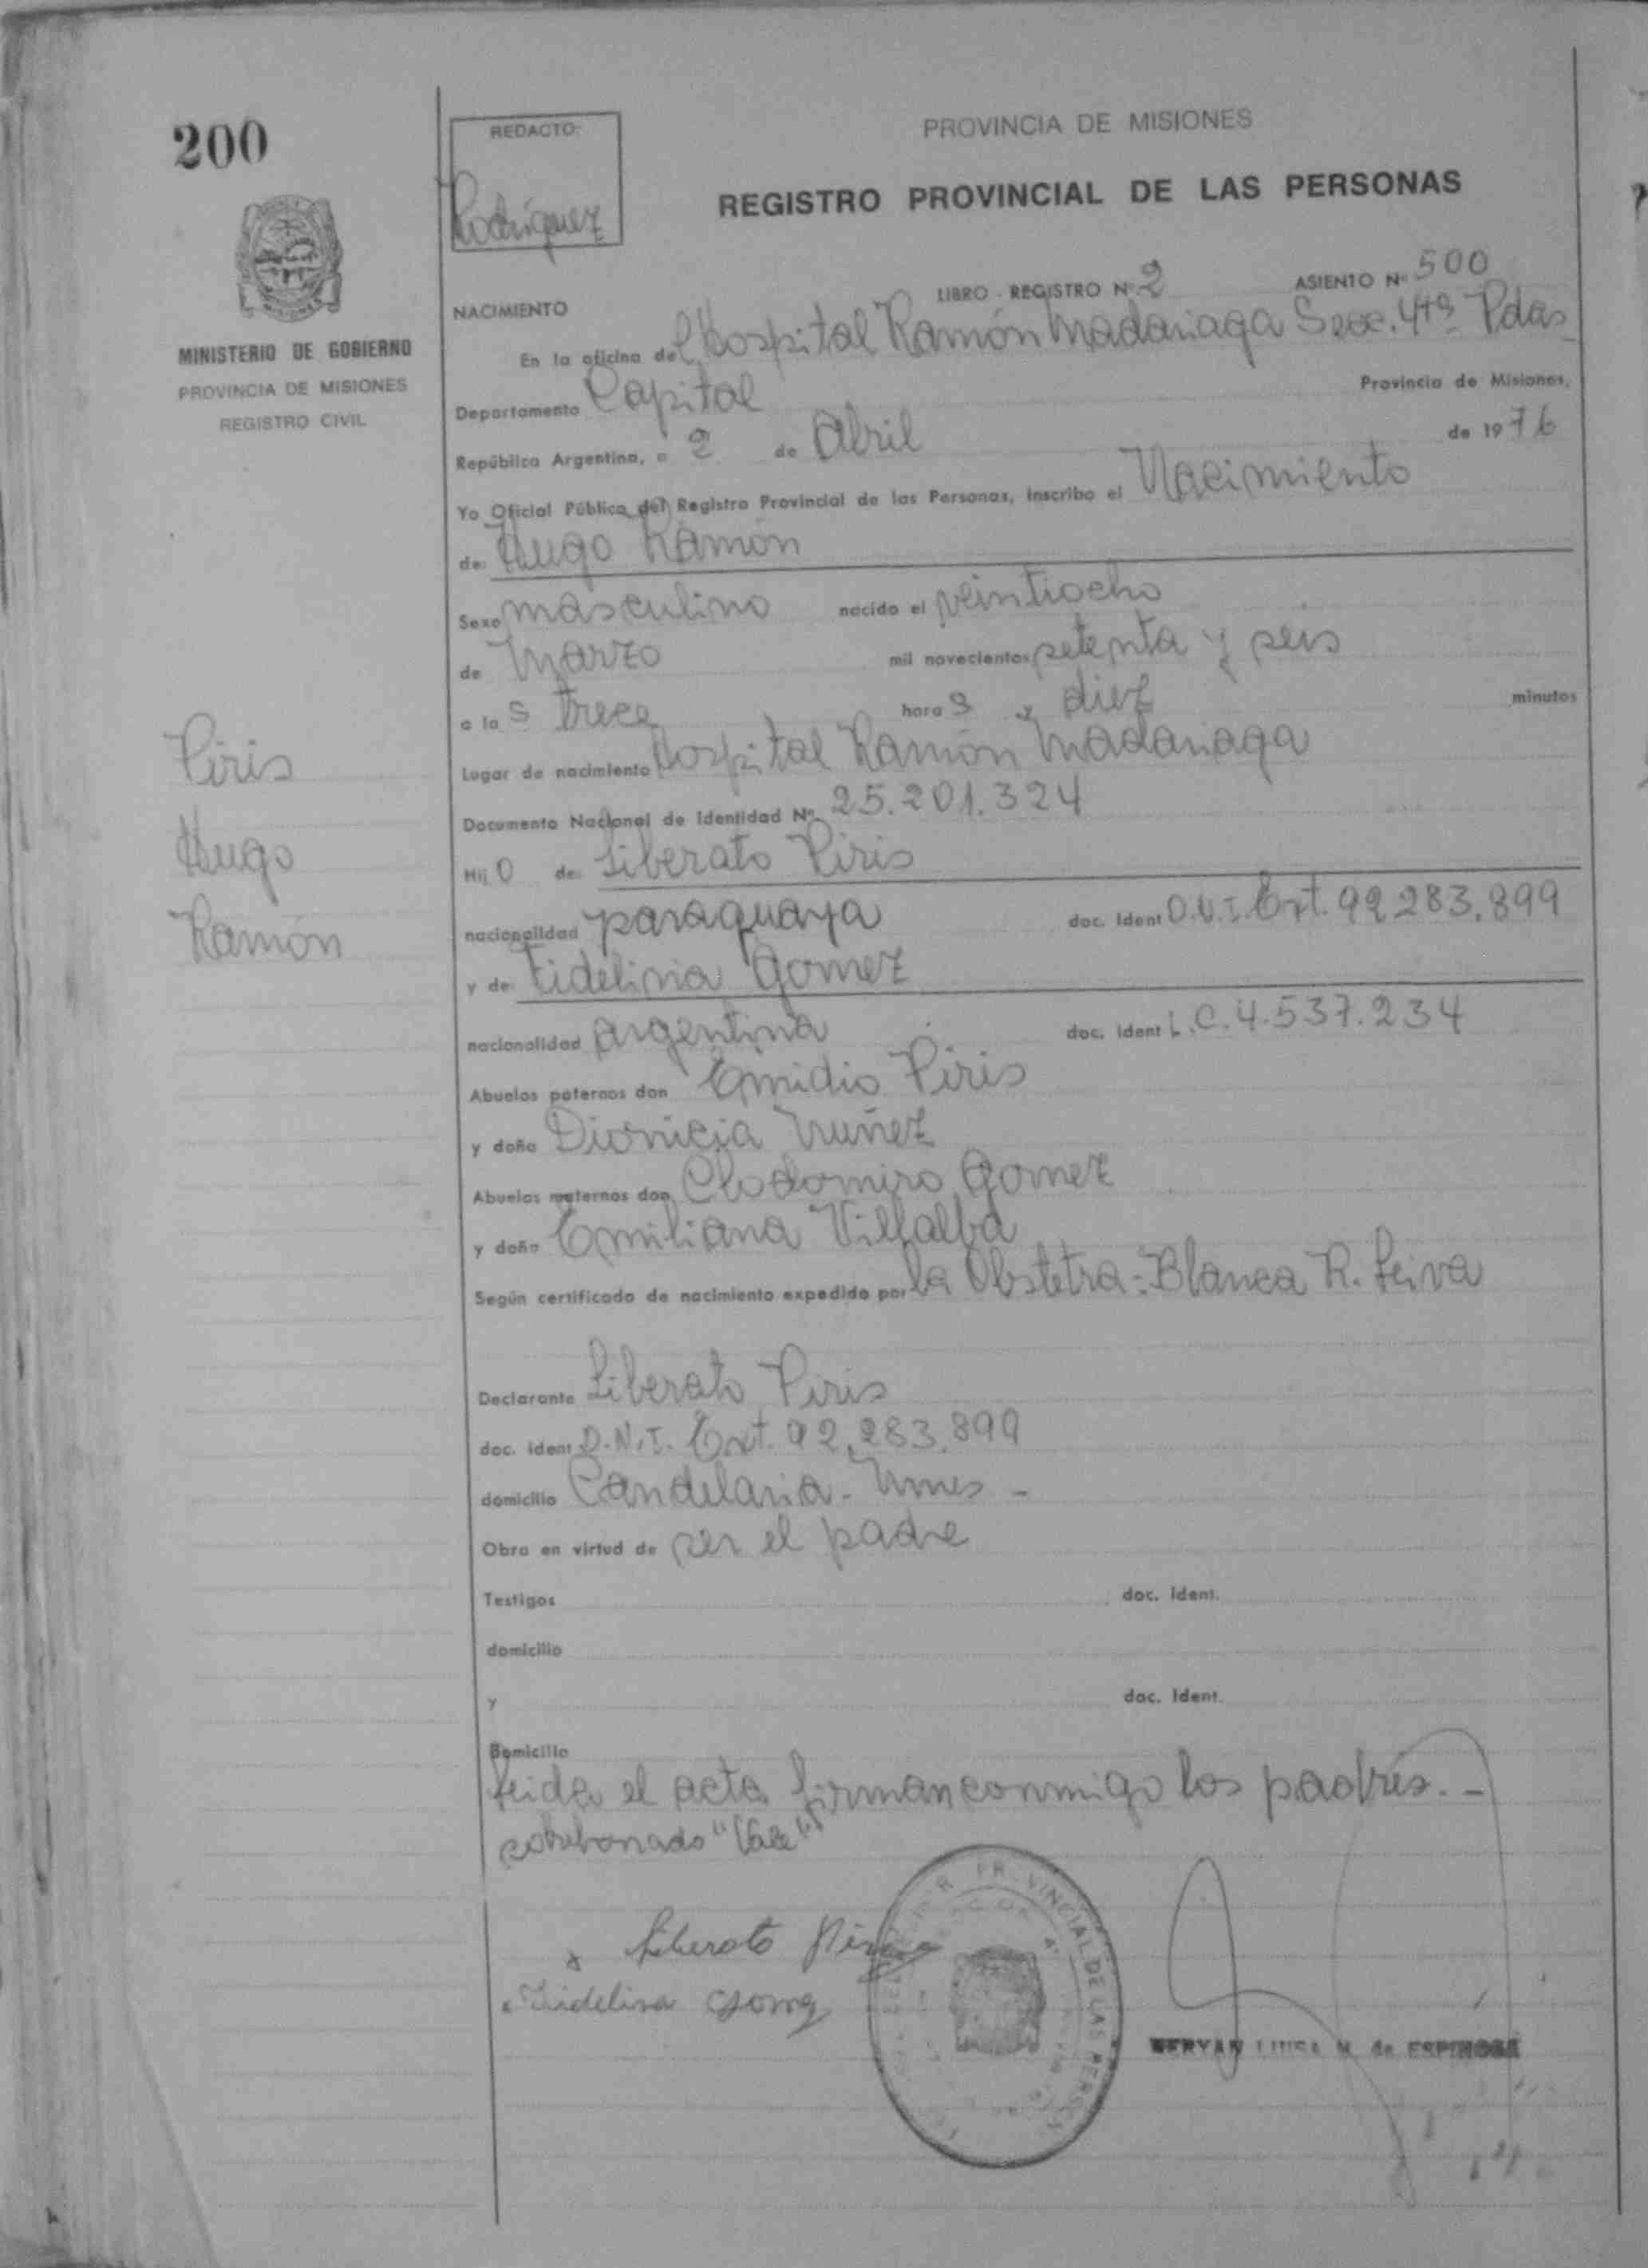 200
MINISTERIO DE GOBIERNO
PROVINCIA DE MISIONES
REGISTRO CIVIL
Piris
Hugo
Ramón
REDACTO:
Rodríguez
PROVINCIA DE MISIONES
REGISTRO PROVINCIAL DE LAS PERSONAS
NACIMIENTO LIBRO - REGISTRO Nº 2 ASIENTO Nº 500
En la oficina del Hospital Ramón Madariaga Secc. 4ta Pdas
Departamento Capital Provincia de Misiones,
República Argentina, a 2 de Abril de 1976
Yo Oficial Público del Registro Provincial de las Personas, inscribo el Nacimiento
de: Hugo Ramón
Sexo masculino nacido el veintiocho
de Marzo mil novecientos setenta y seis
a las trece horas y diez minutos
Lugar de nacimiento Hospital Ramón Madariaga
Documento Nacional de Identidad Nº 25.201.324
Hijo de: Liberato Piris
nacionalidad paraguaya doc. Ident D.N.I. Ext. 92.283.899
y de: Fidelina Gomez
nacionalidad argentina doc. Ident L.C. 4.537.234
Abuelos paternos don Emidio Piris
y doña Dionicia Nuñez
Abuelos maternos don Clodomiro Gomez
y doña Emiliana Villalba
Según certificado de nacimiento expedido por la Obstetra: Blanca R. Leiva
Declarante Liberato Piris
doc. ident D.N.I. Ext. 92.283.899
domicilio Candelaria - Mnes -
Obra en virtud de ser el padre
Testigos doc. Ident.
domicilio
y doc. Ident.
Domicilio
Leida el acta firman conmigo los padres. -
sobrebonado "Vale"
Liberato Piris
Fidelina Gomez
PROVINCIAL DE LAS PERSON
LUISA M. de ESPINOSA